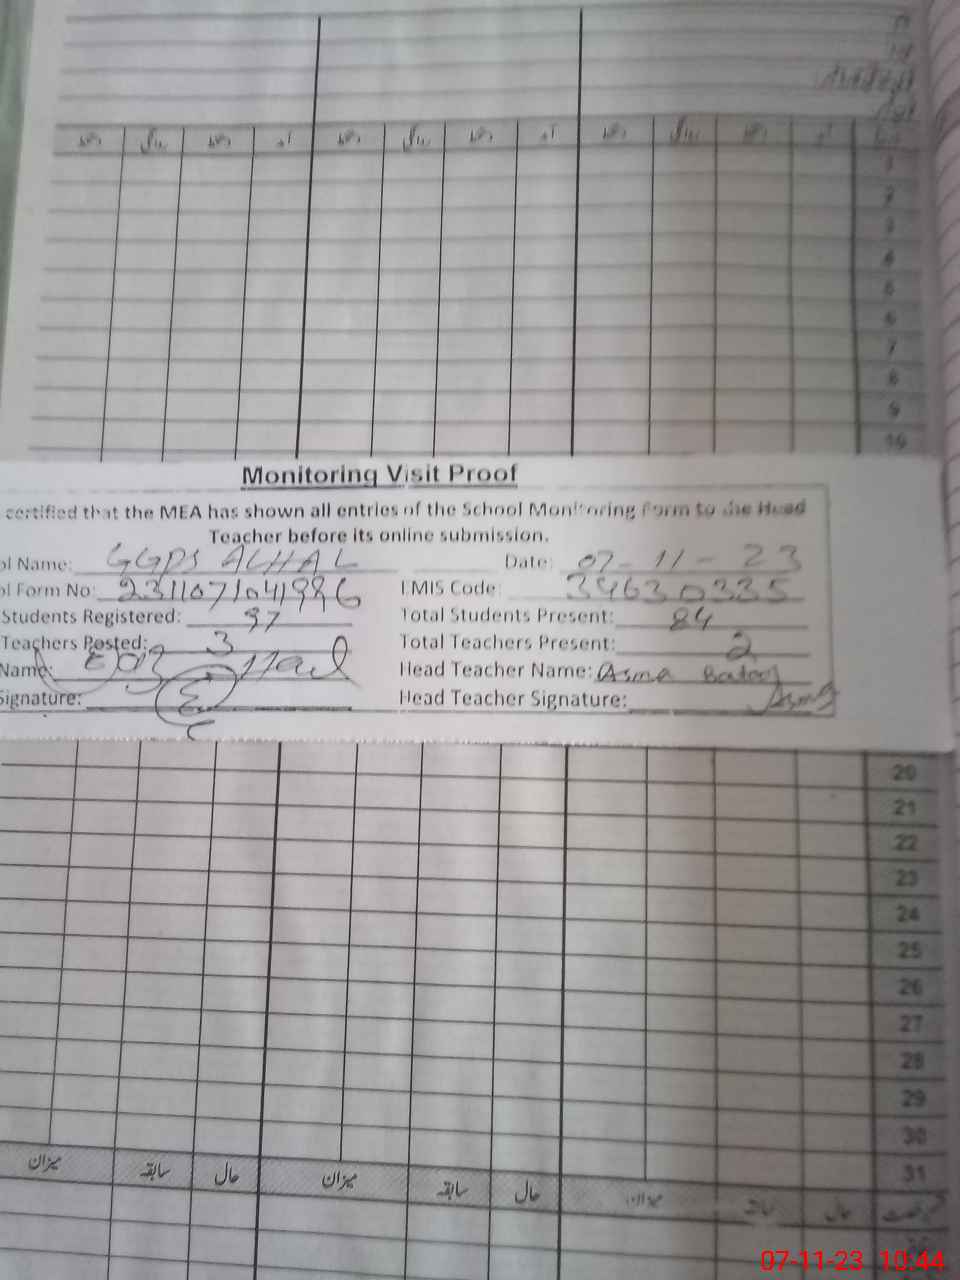 دستخط روانگی دستخط آمد دستخط روانگی دستخط آمد دستخط روانگی دستخط آمد
1
2
3
4
5
6
7
8
9
10
Monitoring Visit Proof
certified that the MEA has shown all entries of the School Monitoring Form to the Head
Teacher before its online submission.
ol Name: GGPS ALHAL Date: 07-11-23
ol Form No: EMIS Code: 34630335
Students Registered: 97 Total Students Present: 84
Teachers Posted: 3 Total Teachers Present: 2
Name: Head Teacher Name: Asma
Signature: Head Teacher Signature: Asma
20
21
22
23
24
25
26
27
28
29
30
31
حال سابقہ میزان حال سابقہ میزان حال سابقہ میزان
07-11-23 10:44